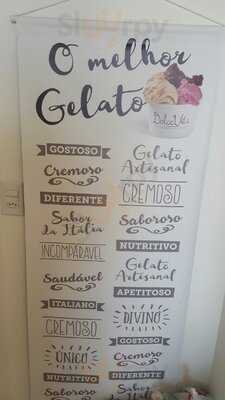 O melhor
Gelato
Dolce Vita
GOSTOSO
Cremoso
DIFERENTE
Sabor
da Itália
INCOMPARÁVEL
Saudável
ITALIANO
CREMOSO
ÚNICO
NUTRITIVO
Cremoso
Gelato
Artesanal
CREMOSO
Saboroso
NUTRITIVO
Gelato
Artesanal
APETITOSO
DIVINO
GOSTOSO
Cremoso
DIFERENTE
Sabor